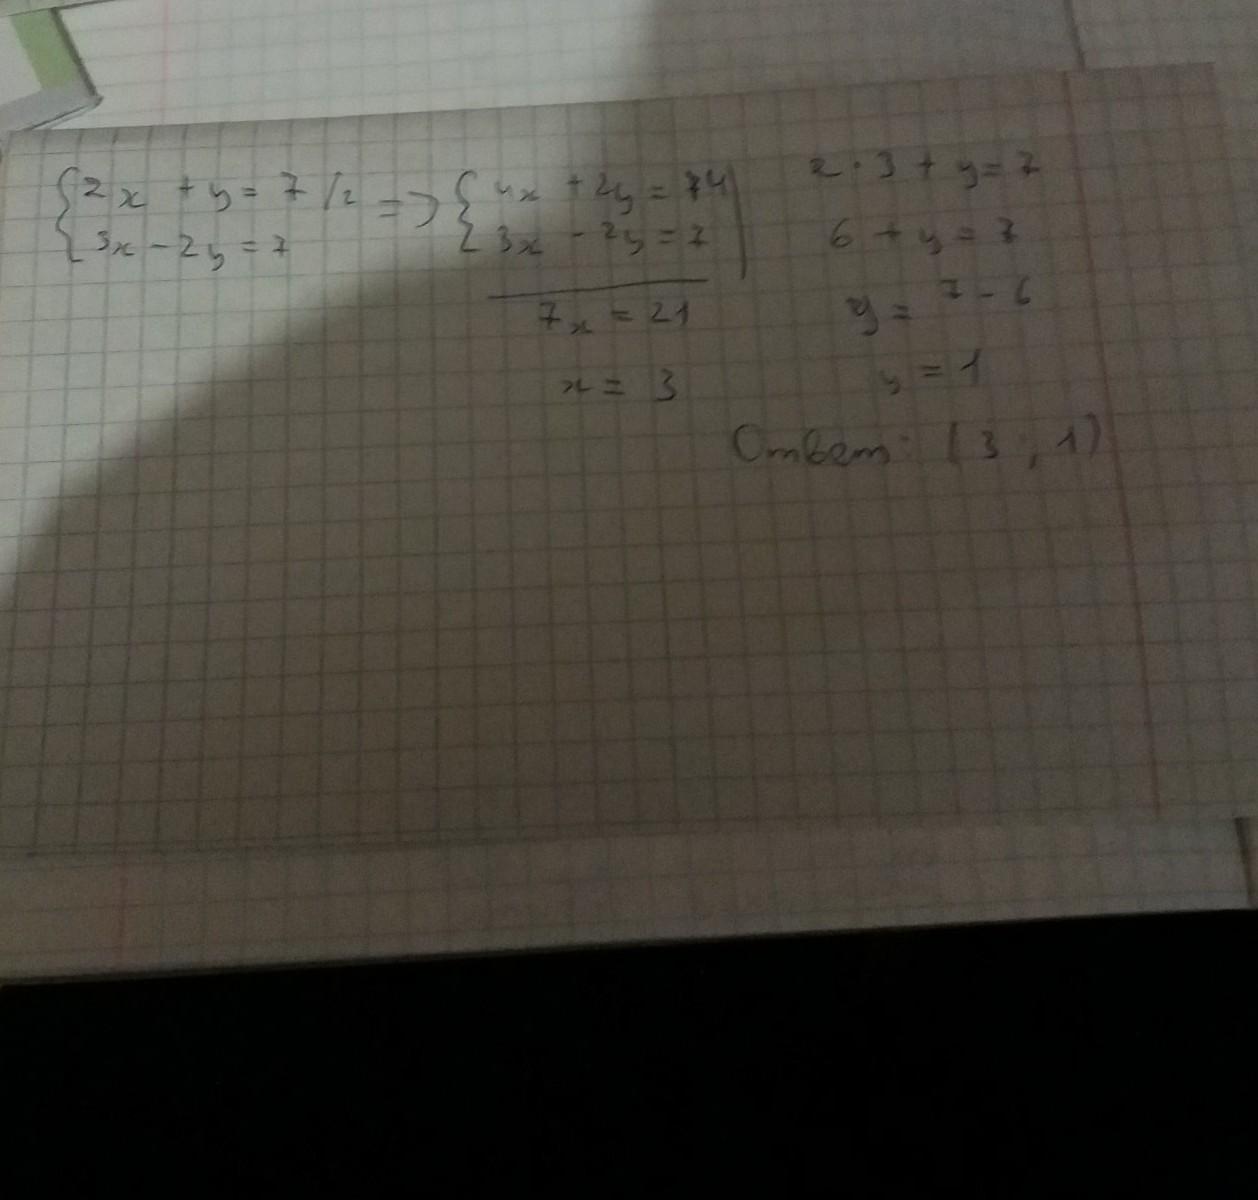 {2x + y = 7 /2 => {4x + 2y = 14 |
3x - 2y = 7
3x - 2y = 7
7x = 21
x = 3
2 · 3 + y = 7
6 + y = 7
y = 7 - 6
y = 1
Ответ: (3 ; 1)